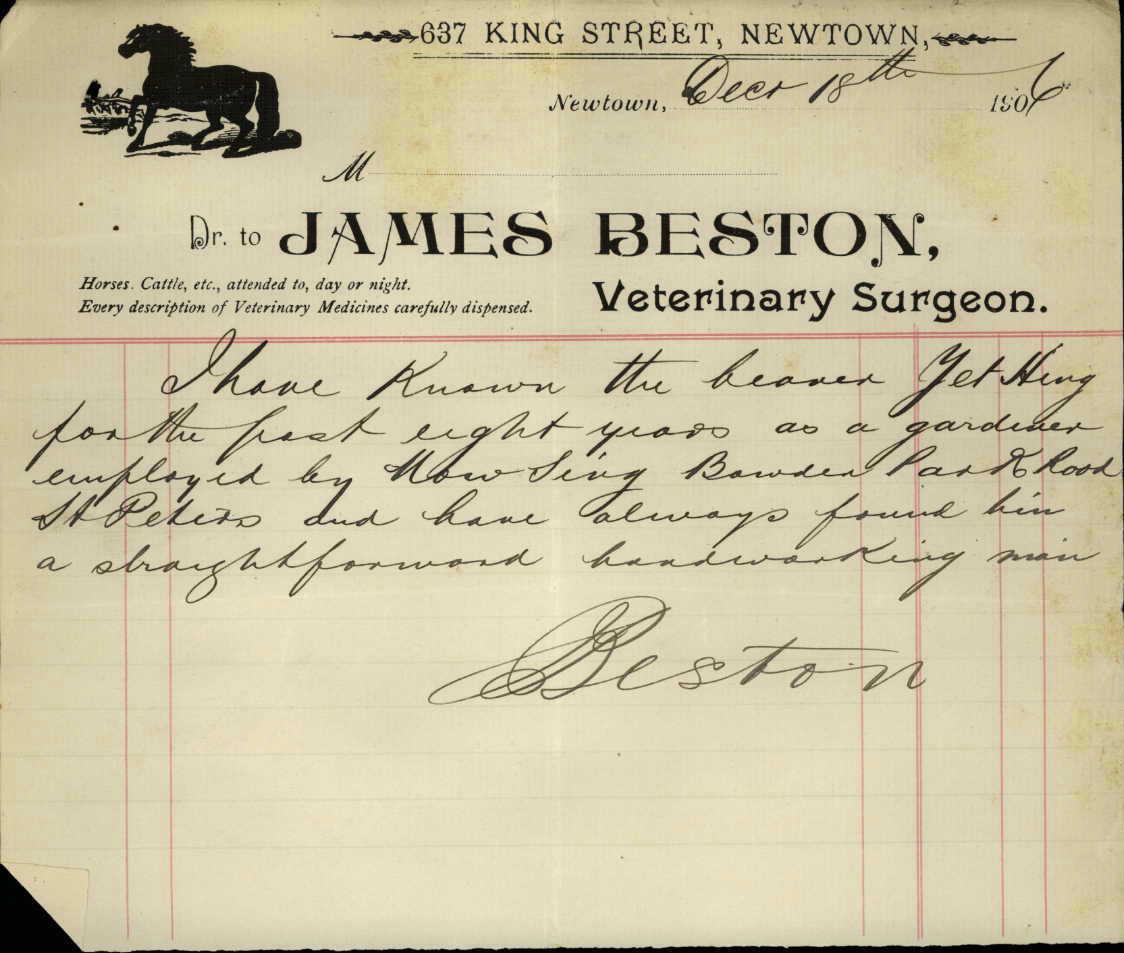 637 KING STREET, NEWTOWN,
Newtown, Decr 18th 1906
M
Dr. to JAMES BESTON,
Horses. Cattle, etc., attended to, day or night.
Every description of Veterinary Medicines carefully dispensed.
Veterinary Surgeon.
I have Known the bearer Yet Hing
for the past eight years as a gardener
employed by How Sing Bowden Park Road
St Peters and have always found him
a straightforward hardworking man
Beston